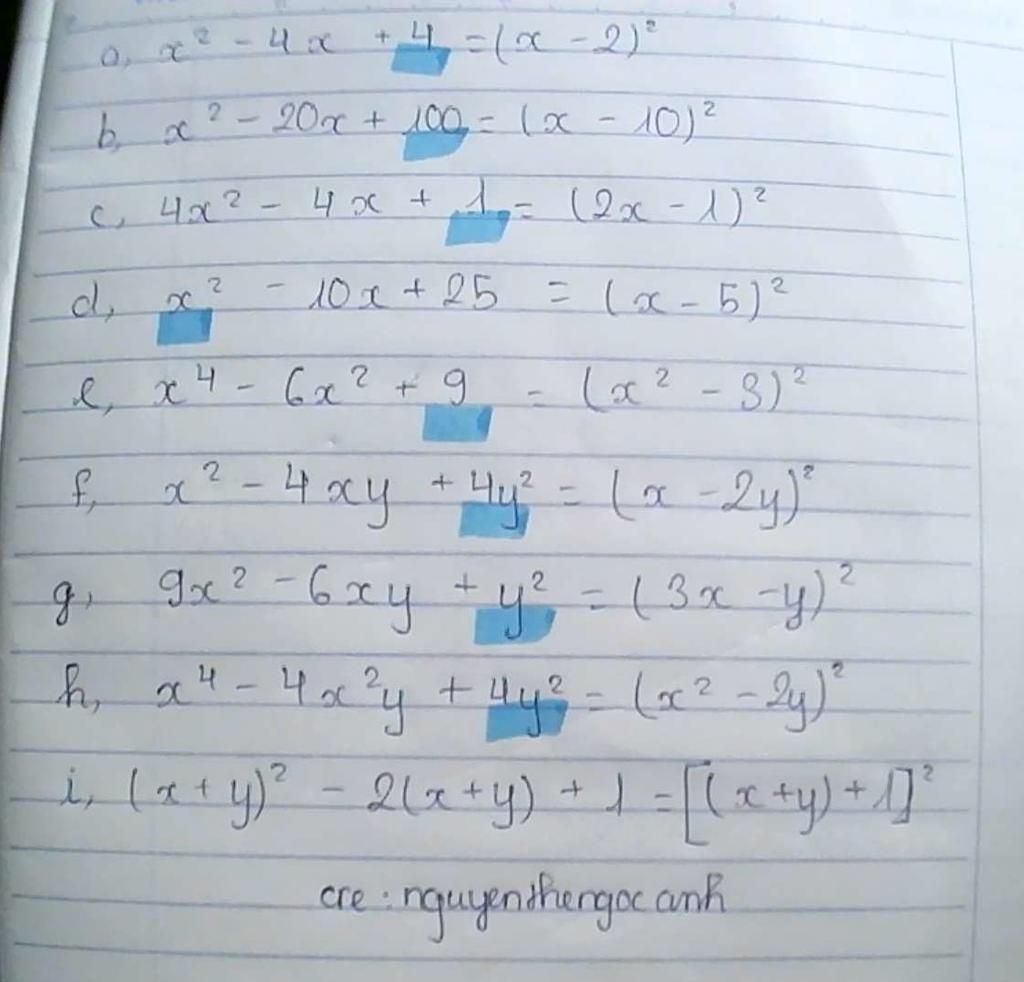 a, x² - 4x + 4 = (x - 2)²
b, x² - 20x + 100 = (x - 10)²
c, 4x² - 4x + 1 = (2x - 1)²
d, x² - 10x + 25 = (x - 5)²
e, x⁴ - 6x² + 9 = (x² - 3)²
f, x² - 4xy + 4y² = (x - 2y)²
g, 9x² - 6xy + y² = (3x - y)²
h, x⁴ - 4x²y + 4y² = (x² - 2y)²
i, (x + y)² - 2(x + y) + 1 = [(x + y) + 1]²
cre : nguyenthengoc anh